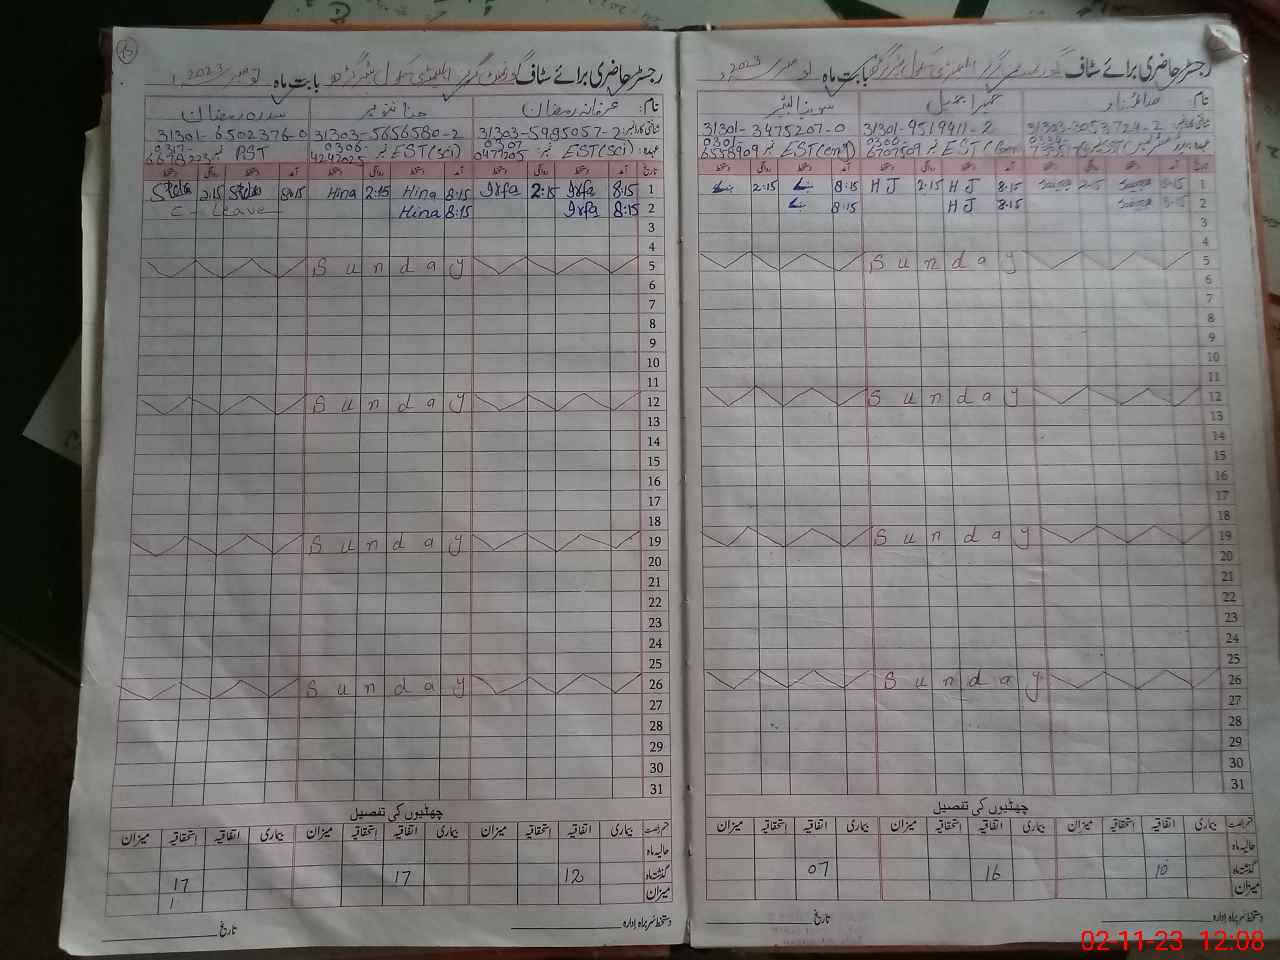 رجسٹر حاضری برائے سٹاف گورنمنٹ گرلز ایلیمنٹری سکول بابت ماہ نومبر 2023
نام: عرفانہ رمضان حنا تنویر سدرہ رمضان
31303-5985057-2 31303-5656580-2 31301-6502376-0
عہدہ: EST (SCI) نمبر 0477205 EST (SCI) نمبر 0306-4247025 PST نمبر
تاریخ آمد دستخط روانگی دستخط آمد دستخط روانگی دستخط آمد دستخط روانگی دستخط
1 8:15 Irfa 2:15 Irfa 8:15 Hina 2:15 Hina 8:15 2:15
2 8:15 Irfa 8:15 Hina E - Leave
3
4
5 Sunday
6
7
8
9
10
11
12 Sunday
13
14
15
16
17
18
19 Sunday
20
21
22
23
24
25
26 Sunday
27
28
29
30
31
چھٹیوں کی تفصیل
قسم رخصت بیماری اتفاقیہ استحقاقیہ میزان بیماری اتفاقیہ استحقاقیہ میزان بیماری اتفاقیہ استحقاقیہ میزان
حالیہ ماہ
گذشتہ ماہ 12 17 17
میزان 1
دستخط سربراہ ادارہ تاریخ
رجسٹر حاضری برائے سٹاف گرلز ایلیمنٹری سکول بابت ماہ نومبر 2023
نام:
31303-3053724-2 31301-9519411-2 31301-3475207-0
6707509 EST (com) نمبر 6558909
تاریخ آمد دستخط روانگی دستخط آمد دستخط روانگی دستخط آمد دستخط روانگی دستخط
1 8:15 2:15 8:15 HJ 2:15 HJ 8:15 2:15
2 8:15 8:15 HJ 8:15
3
4
5 Sunday
6
7
8
9
10
11
12 Sunday
13
14
15
16
17
18
19 Sunday
20
21
22
23
24
25
26 Sunday
27
28
29
30
31
چھٹیوں کی تفصیل
قسم رخصت بیماری اتفاقیہ استحقاقیہ میزان بیماری اتفاقیہ استحقاقیہ میزان بیماری اتفاقیہ استحقاقیہ میزان
حالیہ ماہ
گذشتہ ماہ 10 16 07
میزان
دستخط سربراہ ادارہ تاریخ
02-11-23 12:08